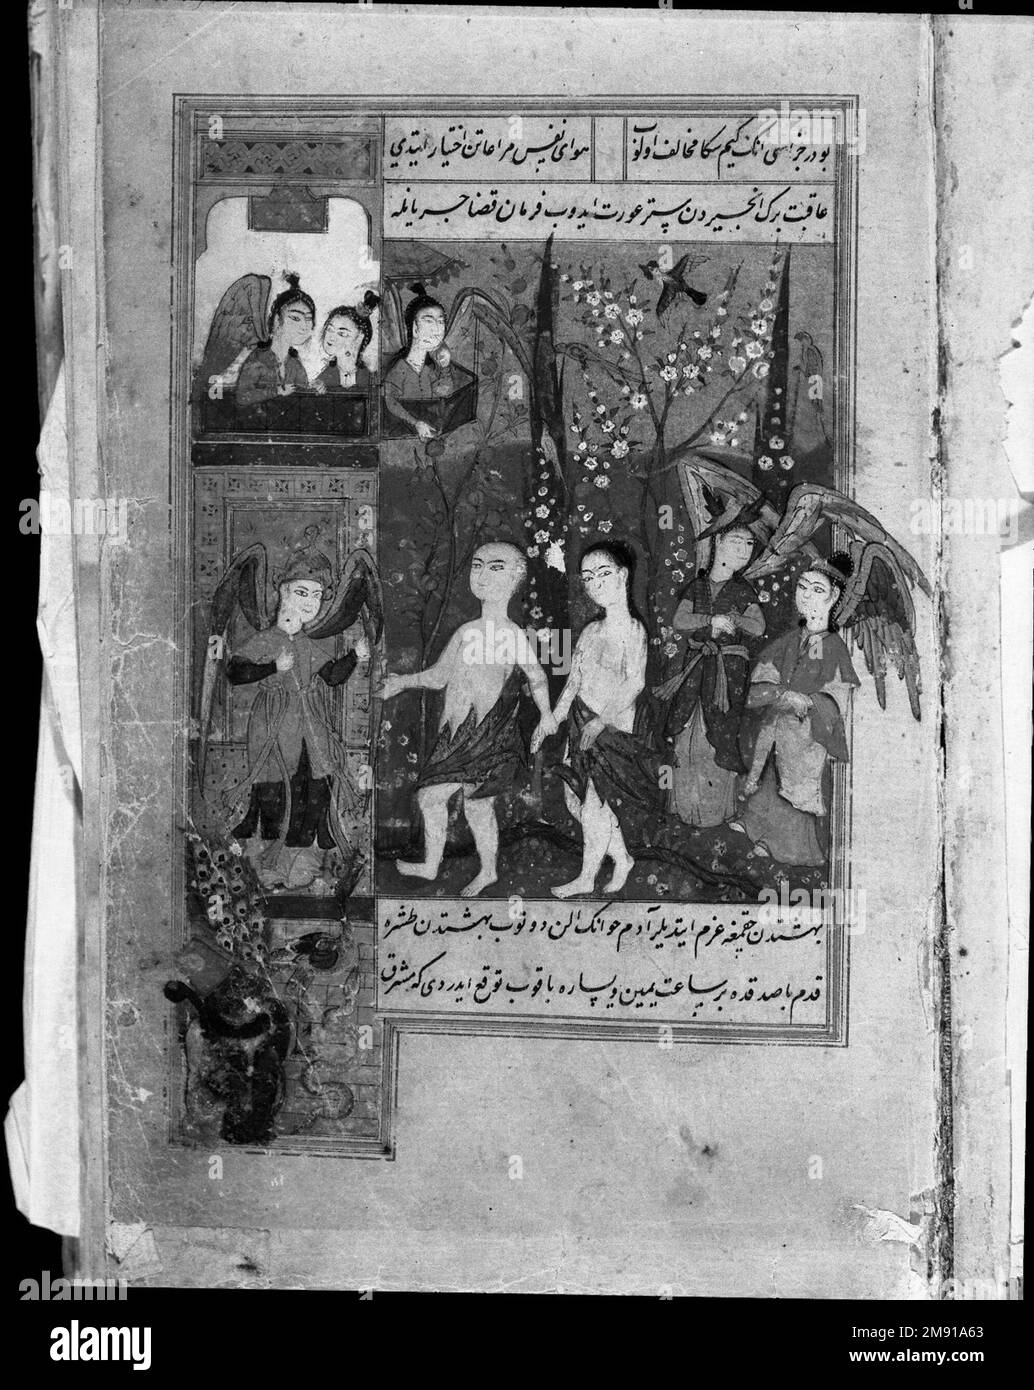 بو در جزاسی انک کیم سکا مخالف اولوب هوای نفس مراعاتن اختیار ایتدی
عاقبت برک انجیردن ستر عورت ایدوب فرمان قضا جریانله
بهشتدن چقمغه عزم ایتدیلر آدم حوانک الن دوتوب بهشتدن طشره
قدم باصدقده بر ساعت یمین ویساره باقوب توقع ایدردی که مشرق
alamy
Image ID: 2M91A63
www.alamy.com